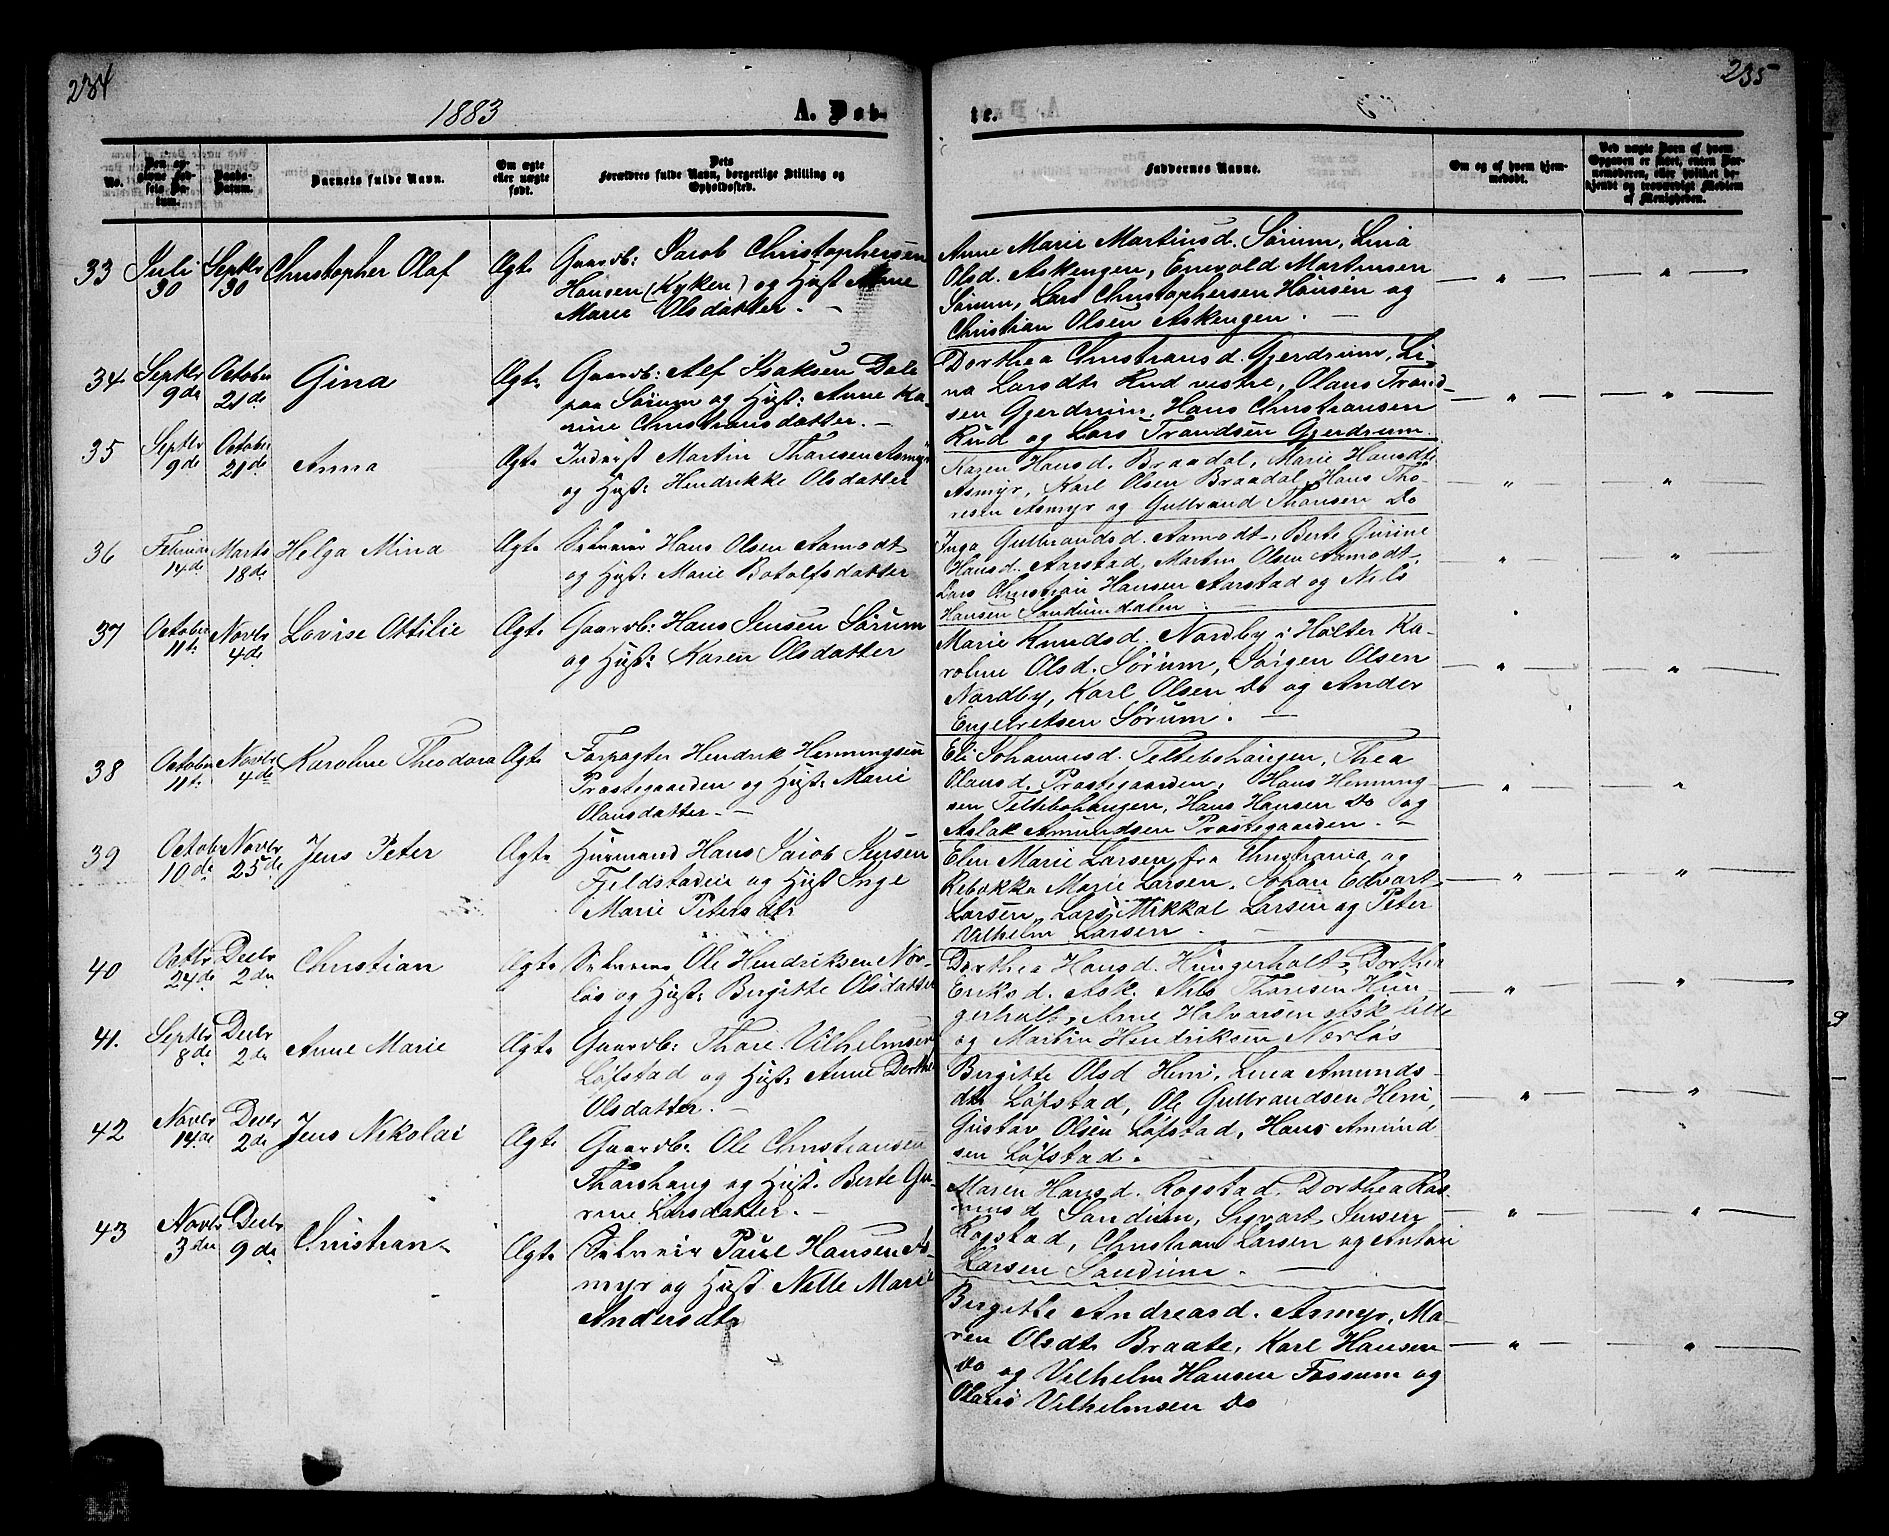 234
1883
A. Døb-
No.
Den op-
givne Fød-
sels Da-
tum.
Daabs-
Datum.
Barnets fulde Navn.
Om ægte
eller uægte
født.
Dets
Forældres fulde Navn, borgerlige Stilling og
Opholdssted.
33 Juli 30 Septbr 30 Christopher Olaf Ægte Gaardb: Jacob Christophersen
Hansen (Kyken) og Hust Anne
Marie Olsdatter. —
34 Septbr 9de October 21de Gina Ægte Gaardb: Alf Isaksen Dale
paa Sørum og Hust: Anne Ka-
rine Christiansdatter. —
35 Septbr 9de October 21de Anna Ægte Inderst Martin Thoresen Asmyr
og Hust: Hendrikke Olsdatter
36 Februar 14de Marts 18de Helga Mina Ægte Selveier Hans Olsen Aamodt
og Hust: Marie Botolfsdatter
37 October 11te Novbr 4de Lovise Ottilie Ægte Gaardb: Hans Jensen Sørum
og Hust: Karen Olsdatter
38 October 11te Novbr 4de Karoline Theodora Ægte Forpagter Hendrik Henningsen
Præstegaarden og Hust: Marie
Olausdatter. —
39 Octob 10de Novbr 25de Jens Peter Ægte Huusmand Hans Jacob Jensen
Fjeldstadeie og Hust Inge
Marie Petersdtr
40 Octbr 24de Decbr 2de Christian Ægte Selveier Ole Hendriksen Nor-
løs og Hust: Birgitte Olsdatter
41. Septbr 8de Decbr 2de Anne Marie Ægte Gaardb: Thore Vilhelmsen
Løfstad og Hust: Anne Dorthe
Olsdatter. —
42 Novbr 14de Decbr 2de Jens Nikolai Ægte Gaardb: Ole Christiansen
Thorshaug og Hust. Berte Gu-
rine Larsdatter. —
43 Novbr 3die Decbr 9de Christian Ægte Selveier Paul Hansen As-
myr og Hust Nelle Marie
Andersdtr
235
te.
Faddernes Navne.
Om og af hvem hjem-
medøbt.
Ved uægte Børn af hvem
Opgaven er skeet, enten Bar-
nemoderen, eller hvilket be-
kjendt og troværdigt Medlem
af Menigheden.
Anne Marie Martinusd. Sørum, Lina
Olsd. Askengen, Enevold Martinsen
Sørum, Lars Christophersen Hansen og
Christian Olsen Askengen. —
Dorthea Christiansd. Gjerdrum, Li-
na Larsdtr Rud vestre, Olaus Trond-
sen Gjerdrum, Hans Christiansen
Rud og Lars Trondsen Gjerdrum.
Karen Hansd. Braadal, Marie Hansdtr
Asmyr, Karl Olsen Braadal, Hans Tho-
resen Asmyr og Gulbrand Thoresen Do
Inga Gulbrandsd. Aamodt, Berte Gurine
Hansd. Aarstad, Martin Olsen Aamodt
Lars Christian Hansen Aarstad og Nils
Hansen Sandumdalen.
Marie Knudsd. Nordby i Holter Ka-
roline Olsd. Sørum, Jørgen Olsen
Nordby, Karl Olsen Do og Ander
Engebretsen Sørum. —
Eli Johannesd. Teltebohaugen, Thea
Olausd. Præstegaarden, Hans Henning-
sen Teltebohaugen, Hans Hansen Do og
Aslak Amundsen Præstegaarden. —
Elen Marie Larsen fra Christiania og
Rebekka Marie Larsen, Johan Edvart
Larsen, Lars Mikkal Larsen og Peter
Vilhelm Larsen. —
Dorthea Hansd. Hungerholt, Dorthea
Eriksd. Ask. Nils Thoresen Hun-
gerholt, Arne Halvorsen Ask lille
og Martin Hendriksen Norløs
Birgitte Olsd Heni, Lina Amunds-
dtr Løfstad, Ole Gulbrandsen Heni,
Gustav Olsen Løfstad, Hans Amund
sen Løfstad.
Maren Hansd. Rogstad, Dorthea Ras-
musd Sandum, Sigvart Jensen
Rogstad, Christian Larsen og Anton
Larsen Sandum. —
Birgitte Andreasd. Asmyr, Ma-
ren Olsdtr Braate, Karl Hansen
Do og Vilhelm Hansen Fossum og
Olaus Vilhelmsen Do